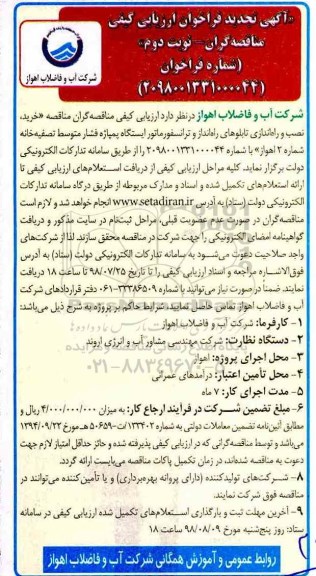 «آگهی تجدید فراخوان ارزیابی کیفی
مناقصه‌گران – نوبت دوم»
(شماره فراخوان
۲۰۹۸۰۰۱۳۳۱۰۰۰۰۴۴)
شرکت آب و فاضلاب اهواز
شرکت آب و فاضلاب اهواز درنظر دارد ارزیابی کیفی مناقصه‌گران مناقصه «خرید،
نصب و راه‌اندازی تابلوهای راه‌انداز و ترانسفورماتور ایستگاه پمپاژه فشار متوسط تصفیه‌خانه
شماره ۲ اهواز» با شماره ۲۰۹۸۰۰۱۳۳۱۰۰۰۰۴۴ را از طریق سامانه تدارکات الکترونیکی
دولت برگزار نماید. کلیه مراحل ارزیابی کیفی از دریافت استعلام‌های ارزیابی کیفی تا
ارائه استعلام‌های تکمیل شده و اسناد و مدارک مربوطه از طریق درگاه سامانه تدارکات
الکترونیکی دولت (ستاد) به آدرس www.setadiran.ir انجام خواهد شد و لازم است
مناقصه‌گران در صورت عدم عضویت قبلی، مراحل ثبت‌نام در سایت مذکور و دریافت
گواهینامه امضای الکترونیکی را جهت شرکت در مناقصه محقق سازند. لذا از شرکت‌های
واجد صلاحیت دعوت می‌شود به سامانه تدارکات الکترونیکی دولت (ستاد) به آدرس
فوق‌الاشاره مراجعه و اسناد ارزیابی کیفی را تا تاریخ ۹۸/۰۷/۲۵ تا ساعت ۱۸ دریافت
نمایند. ضمناً در صورت نیاز می‌توانید با شماره ۳۳۳۸۶۵۰۹-۰۶۱ دفتر قراردادهای شرکت
آب و فاضلاب اهواز تماس حاصل نمایید. شرایط حاکم بر پروژه به شرح ذیل می‌باشد:
۱- کارفرما: شرکت آب و فاضلاب اهواز
۲- دستگاه نظارت: شرکت مهندسی مشاور آب و انرژی اروند
۳- محل اجرای پروژه: اهواز
۴- محل تأمین اعتبار: درآمدهای عمرانی
۵- مدت اجرای کار: ۷ ماه
۶- مبلغ تضمین شرکت در فرآیند ارجاع کار: به میزان ۴/۰۰۰/۰۰۰/۰۰۰ ریال و
مطابق آئین‌نامه تضمین معاملات دولتی به شماره ۱۲۳۴۰۲/ت۵۰۶۵۹هـ مورخ ۱۳۹۴/۰۹/۲۲
می‌باشد و توسط مناقصه‌گرانی که در ارزیابی کیفی پذیرفته شده و حائز حداقل امتیاز لازم جهت
دعوت به مناقصه شده‌اند، در زمان تکمیل پاکات مناقصه می‌بایست ارائه گردد.
۸- شرکت‌های تولیدکننده (دارای پروانه بهره‌برداری) و یا تأمین‌کننده می‌توانند در
مناقصه فوق شرکت نمایند.
۹- آخرین مهلت ثبت و بارگذاری استعلام‌های تکمیل شده ارزیابی کیفی در سامانه
ستاد: روز پنج‌شنبه مورخ ۹۸/۰۸/۰۹ ساعت ۱۸
روابط عمومی و آموزش همگانی شرکت آب و فاضلاب اهواز